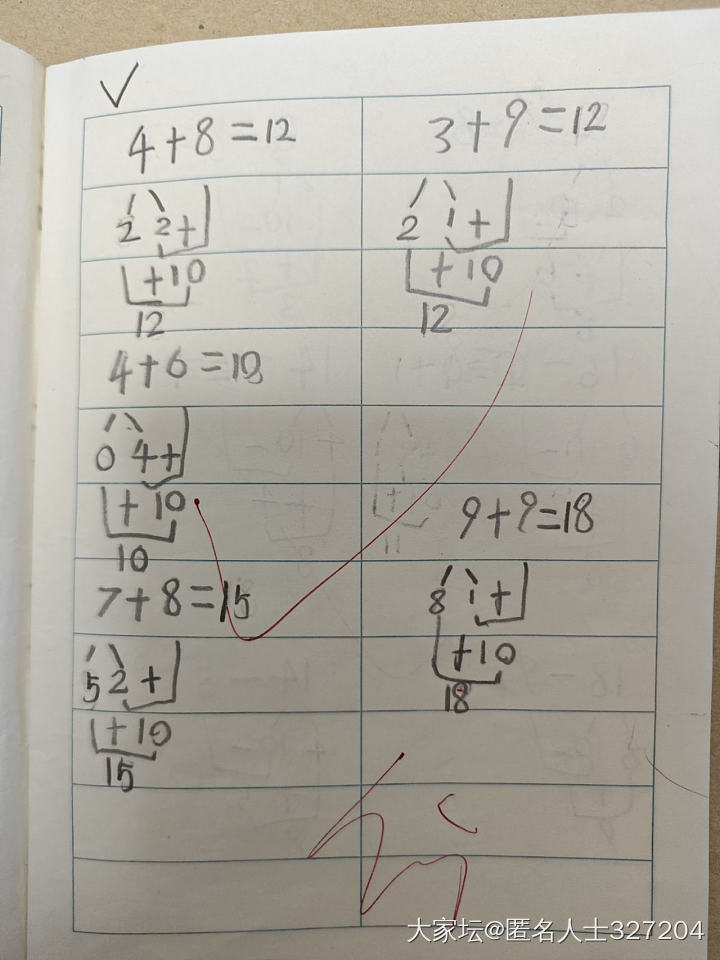 4+8=12
2 2+
+10
12
3+9=12
2 1+
+10
12
4+6=10
0 4+
+10
10
7+8=15
5 2+
+10
15
9+9=18
8 1+
+10
18
大家坛@匿名人士327204